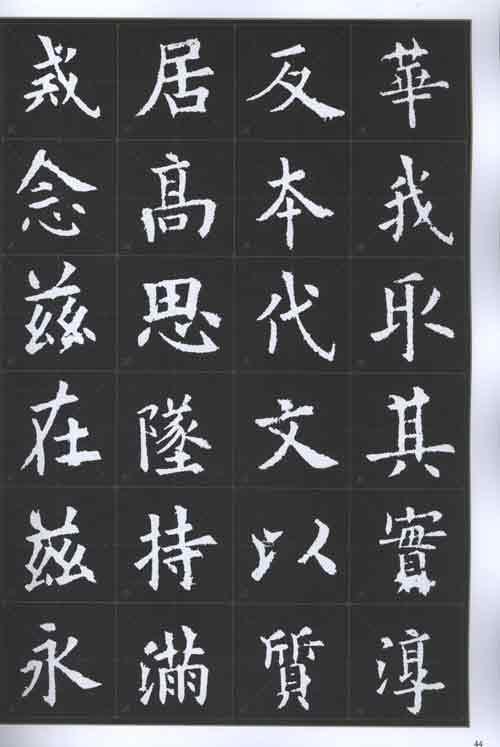 華我取其實淳
反本代文以質
居高思墜持滿
戒念茲在茲永
44